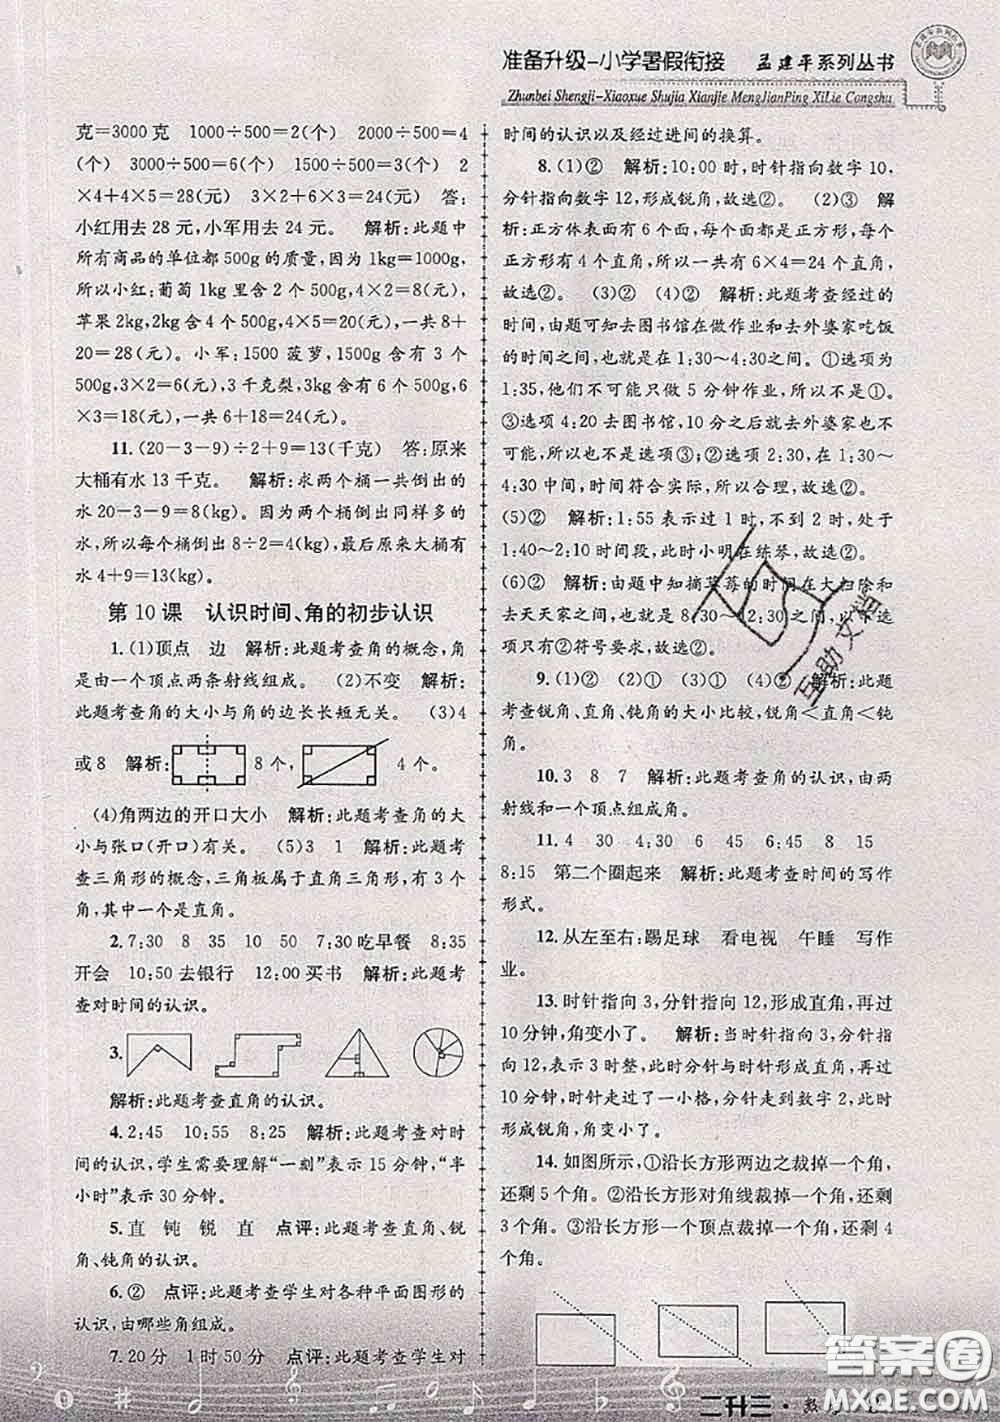 准备升级-小学暑假衔接 孟建平系列丛书
Zhunbei Shengji-Xiaoxue Shujia Xianjie MengJianPing XiLie Congshu
克=3000克 1000÷500=2(个) 2000÷500=4
(个) 3000÷500=6(个) 1500÷500=3(个) 2
×4+4×5=28(元) 3×2+6×3=24(元) 答:
小红用去28元,小军用去24元。 解析:此题中
所有商品的单位都500g的质量,因为1kg=1000g,
所以小红:葡萄1kg里含2个500g,4×2=8(元),
苹果2kg,2kg含4个500g,4×5=20(元),一共8+
20=28(元)。小军:1500菠萝,1500g含有3个
500g,2×3=6(元),3千克梨,3kg含有6个500g,6
×3=18(元),一共6+18=24(元)。
11.(20-3-9)÷2+9=13(千克) 答:原来
大桶有水13千克。 解析:求两个桶一共倒出的
水20-3-9=8(kg)。因为两个桶倒出同样多的
水,所以每个桶倒出8÷2=4(kg),最后原来大桶有
水4+9=13(kg)。
第10课 认识时间、角的初步认识
1.(1)顶点 边 解析:此题考查角的概念,角
是由一个顶点两条射线组成。 (2)不变 解析:
此题考查角的大小与角的边长长短无关。 (3)4
或8 解析: 8个, 4个。
(4)角两边的开口大小 解析:此题考查角的大
小与张口(开口)有关。 (5)3 1 解析:此题考
查三角形的概念,三角板属于直角三角形,有3个
角,其中一个是直角。
2.7:30 8 35 10 50 7:30吃早餐 8:35
开会 10:50去银行 12:00买书 解析:此题考
查对时间的认识。
3.
解析:此题考查直角的认识。
4.2:45 10:55 8:25 解析:此题考查对时
间的认识,学生需要理解“一刻”表示15分钟,“半
小时”表示30分钟。
5.直 钝 锐 直 点评:此题考查直角、锐
角、钝角的认识。
6.② 点评:此题考查学生对各种平面图形的
认识,由哪些角组成。
7.20分 1时50分 点评:此题考查学生对
时间的认识以及经过进间的换算。
8.(1)② 解析:10:00时,时针指向数字10,
分针指向数字12,形成锐角,故选②。 (2)③ 解
析:正方体表面有6个面,每个面都是正方形,正方
形有4个直角,所以一共有6×4=24个直角,
故选②。 (3)② (4)② 解析:此题考查经过的
时间,由题可知去图书馆在做作业和去外婆家吃饭
的时间之间,也就是1:30~4:30之间。①选项为
1:35,他们不可能只做5分钟作业,所以不是①。
③选项4:20去图书馆,10分之后就去外婆家也不
可能,所以不可能选项③;②选项2:30,在1:30~
4:30中间,时间符合实际,所以合理,故选②。
(5)② 解析:1:55表示过1时,不到2时,处于
1:40~2:10时间段,此时小明在练琴,故选②。
(6)② 解析:由题中知道摘草莓的时间在大扫除和
去天天家之间,也就是8:30~9:40之间,以下选
项只有②符号要求,故选②。
9.(1)② (2)① (3)① (4)② 解析:此题
考查锐角、直角、钝角的大小比较,锐角<直角<钝
角。
10.3 8 7 解析:此题考查角的认识,由两
射线和一个顶点组成角。
11.4 30 4:30 6 45 6:45 8 15
8:15 第二个圈起来 解析:此题考查时间的写作
形式。
12.从左至右:踢足球 看电视 午睡 写作
业。
13.时针指向3,分针指向12,形成直角,再过
10分钟,角变小了。 解析:当时针指向3,分针指
向12,表示3时整,此时分针与时针形成直角,再过
10分钟,此时时针走了一小格,分针走到数字2,此
时形成锐角,角变小了。
14.如图所示,①沿长方形两边之裁掉一个角,
还剩5个角。②沿长方形对角线裁掉一个角,还剩
3个角。③沿长方形一个顶点裁掉一个角,还剩4
个角。
互助文档
二升三·数
答案圈
MXQE.COM